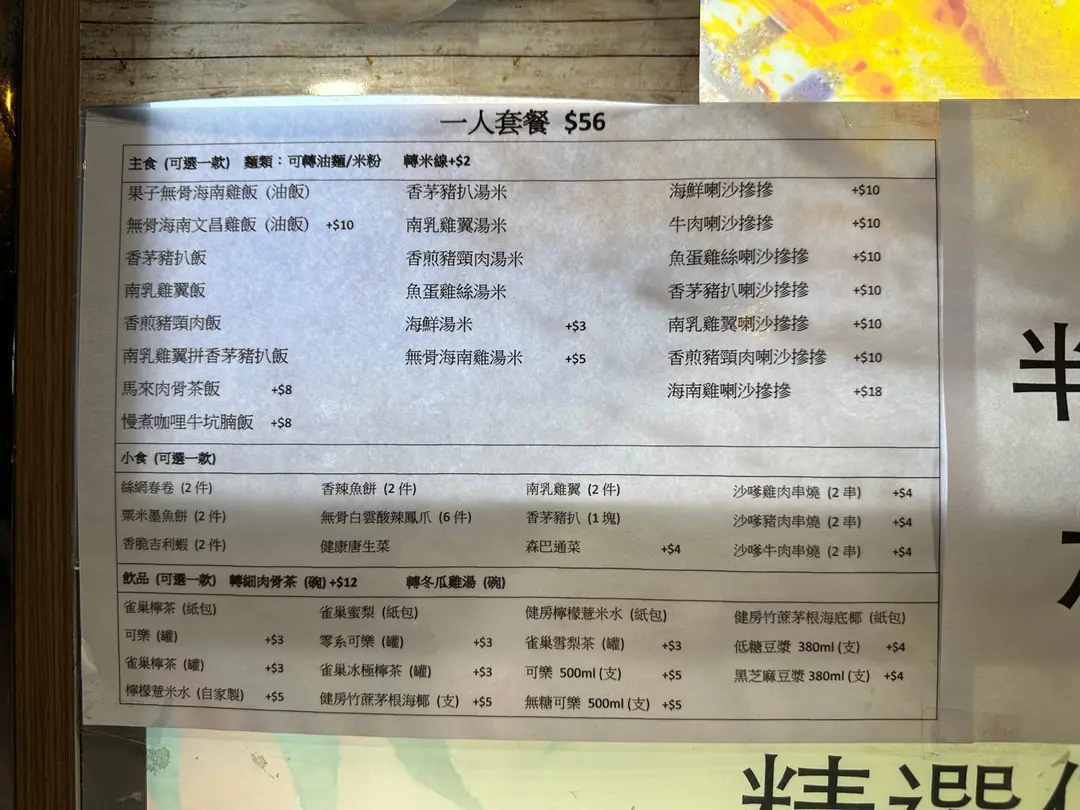 一人套餐 $56
主食 (可選一款) 麵類：可轉油麵/米粉 轉米線+$2
果子無骨海南雞飯 (油飯) 香茅豬扒湯米 海鮮喇沙摻摻 +$10
無骨海南文昌雞飯 (油飯) +$10 南乳雞翼湯米 牛肉喇沙摻摻 +$10
香茅豬扒飯 香煎豬頸肉湯米 魚蛋雞絲喇沙摻摻 +$10
南乳雞翼飯 魚蛋雞絲湯米 香茅豬扒喇沙摻摻 +$10
香煎豬頸肉飯 海鮮湯米 +$3 南乳雞翼喇沙摻摻 +$10
南乳雞翼拼香茅豬扒飯 無骨海南雞湯米 +$5 香煎豬頸肉喇沙摻摻 +$10
馬來肉骨茶飯 +$8 海南雞喇沙摻摻 +$18
慢煮咖哩牛坑腩飯 +$8
小食 (可選一款)
絲網春卷 (2 件) 香辣魚餅 (2 件) 南乳雞翼 (2 件) 沙嗲雞肉串燒 (2 串) +$4
粟米墨魚餅 (2 件) 無骨白雲酸辣鳳爪 (6 件) 香茅豬扒 (1 塊) 沙嗲豬肉串燒 (2 串) +$4
香脆吉利蝦 (2 件) 健康唐生菜 森巴通菜 +$4 沙嗲牛肉串燒 (2 串) +$4
飲品 (可選一款) 轉細肉骨茶 (碗) +$12 轉冬瓜雞湯 (碗)
雀巢檸茶 (紙包) 雀巢蜜梨 (紙包) 健房檸檬薏米水 (紙包) 健房竹蔗茅根海底椰 (紙包)
可樂 (罐) +$3 零系可樂 (罐) +$3 雀巢雪梨茶 (罐) +$3 低糖豆漿 380ml (支) +$4
雀巢檸茶 (罐) +$3 雀巢冰極檸茶 (罐) +$3 可樂 500ml (支) +$5 黑芝麻豆漿 380ml (支) +$4
檸檬薏米水 (自家製) +$5 健房竹蔗茅根海椰 (支) +$5 無糖可樂 500ml (支) +$5
半
精選